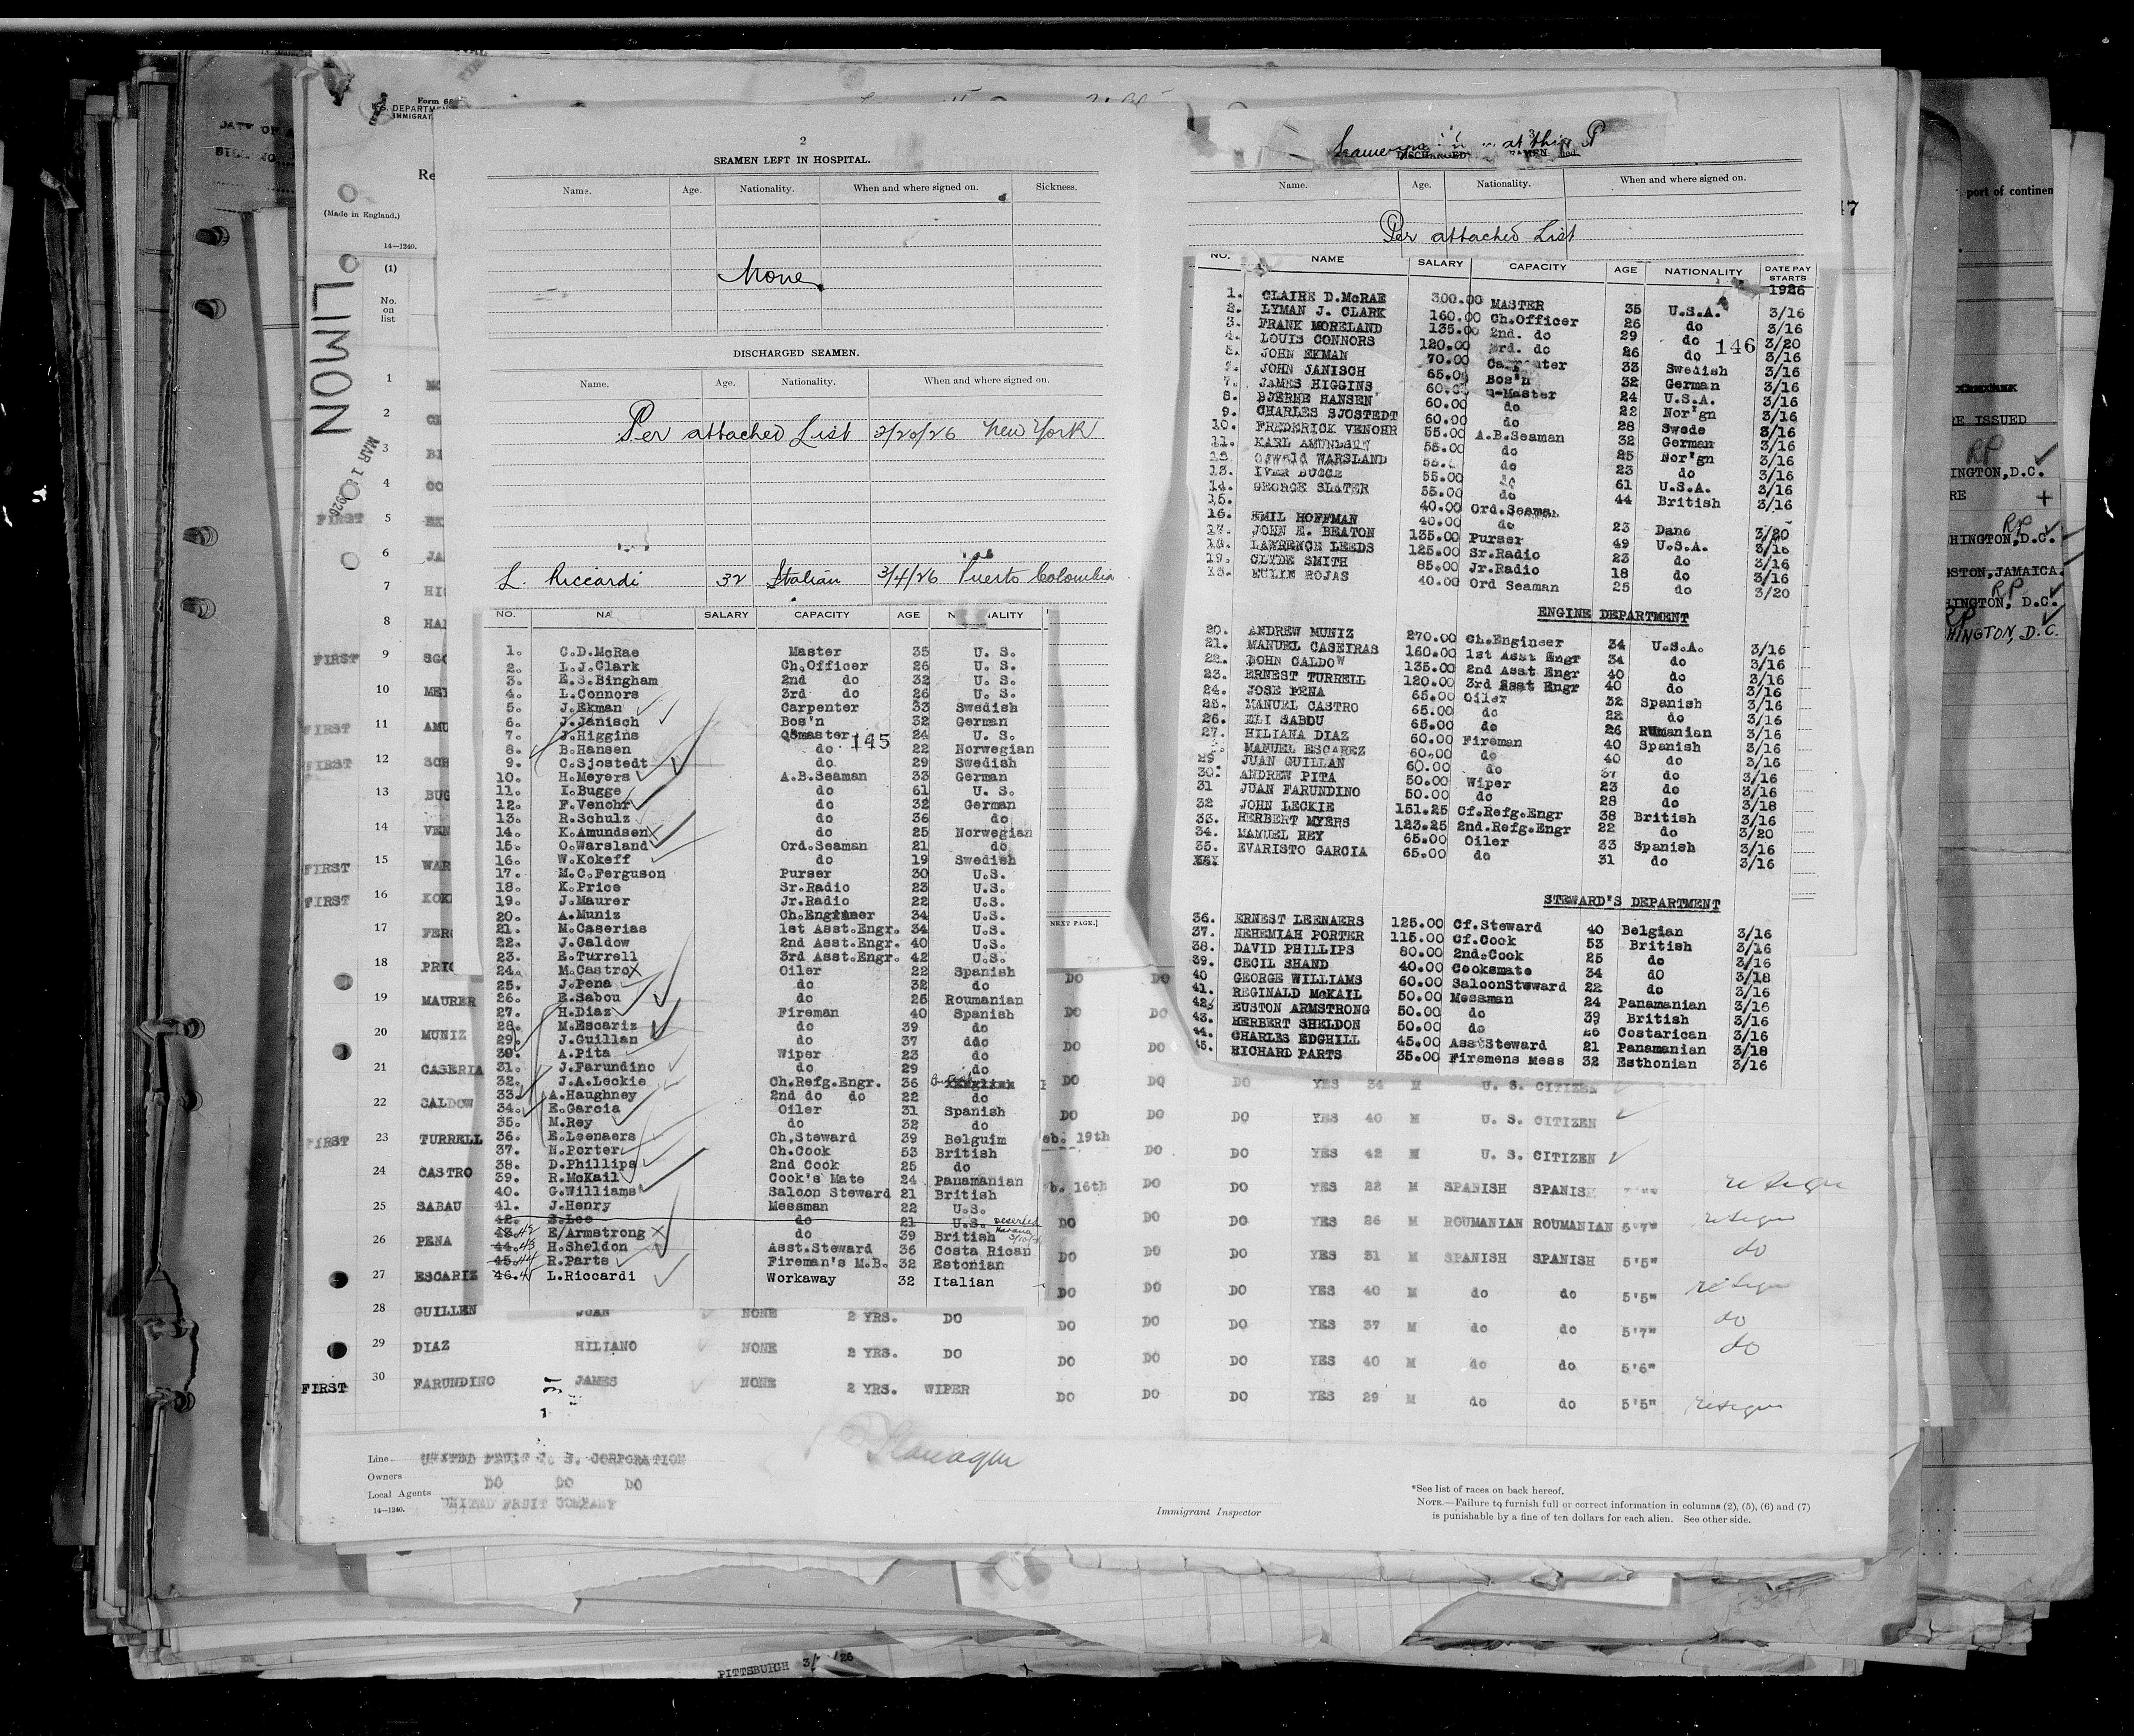 Form 68
U.S. DEPARTM
IMMIGRAT
Re
(Made in England.)
14—1240.
(1)
No.
on
list
LIMON
MAR 1 8 1926
2
SEAMEN LEFT IN HOSPITAL.
Name. Age. Nationality. When and where signed on. Sickness.
None
DISCHARGED SEAMEN.
Name. Age. Nationality. When and where signed on.
Per attached List 3/20/26 New York
L. Riccardi 32 Italian 3/4/26 Puerto Colombia
NO. NA SALARY CAPACITY AGE N IALITY
1. C.D.McRae Master 35 U. S.
2. L.J.Clark Ch.Officer 26 U. S.
3. E.S.Bingham 2nd do 32 U. S.
4. L.Connors 3rd do 26 U. S.
5. J.Ekman Carpenter 33 Swedish
6. J.Janisch Bos'n 32 German
7. J.Higgins Qsmaster 24 U. S.
145
8. B.Hansen do 22 Norwegian
9. C.Sjostedt do 29 Swedish
10. H.Meyers A.B.Seaman 33 German
11. I.Bugge do 61 U. S.
12. F.Venohr do 32 German
13. R.Schulz do 36 do
14. K.Amundsen do 25 Norwegian
15. O.Warsland Ord.Seaman 21 do
16. W.Kokeff do 19 Swedish
17. M.C.Ferguson Purser 30 U.S.
18. K.Price Sr.Radio 23 U.S.
19. J.Maurer Jr.Radio 22 U.S.
20. A.Muniz Ch.Engineer 34 U.S.
21. M.Caserias 1st Asst.Engr. 34 U.S.
22. J.Caldow 2nd Asst.Engr. 40 U.S.
23. E.Turrell 3rd Asst.Engr. 42 U.S.
24. M.Castro Oiler 22 Spanish
25. J.Pena do 32 do
26. E.Sabou do 25 Roumanian
27. H.Diaz Fireman 40 Spanish
28. M.Escariz do 39 do
29. J.Guillan do 37 ddo
30. A.Pita Wiper 23 do
31. J.Farundino do 29 do
32. J.A.Leckie Ch.Refg.Engr. 36
33. A.Haughney 2nd do do 22 do
34. E.Garcia Oiler 31 Spanish
35. M.Rey do 32 do
36. E.Leenaers Ch.Steward 39 Belguim
37. N.Porter Ch.Cook 53 British
38. D.Phillips 2nd Cook 25 do
39. R.McKail Cook's Mate 24 Panamanian
40. G.Williams Saloon Steward 21 British
41. J.Henry Messman 22 U.S.
42. S.Lee do 21 U.S. Deserted Havana 3/10/26
43. 42 E/Armstrong do 39 British
44. 43 H.Sheldon Asst.Steward 36 Costa Rican
45. 44 R.Parts Fireman's M.B. 32 Estonian
46. 45 L.Riccardi Workaway 32 Italian
3
DISCHARGED SEAMEN
at this P
Name. Age. Nationality. When and where signed on.
47
Per attached List
NO. NAME SALARY CAPACITY AGE NATIONALITY DATE PAY STARTS
1926
1. CLAIRE D.McRAE 300.00 MASTER 35 U.S.A. 3/16
2. LYMAN J. CLARK 160.00 Ch.Officer 26 do 3/16
3. FRANK MORELAND 135.00 2nd. do 29 do 3/20
146
4. LOUIS CONNORS 120.00 3rd. do 26 do 3/16
5. JOHN EKMAN 70.00 Carpenter 33 Swedish 3/16
JOHN JANISCH 65.00 Bos'n 32 German 3/16
7. JAMES HIGGINS 60.00 Q-Master 24 U.S.A. 3/16
8. BJERNE HANSEN 60.00 do 22 Nor'gn 3/16
9. CHARLES SJOSTEDT 60.00 do 28 Swede 3/16
10. FREDERICK VENOHR 55.00 A.B.Seaman 32 German 3/16
11. KARL AMUNDSEN 55.00 do 25 Nor'gn 3/16
12. OSWALD WARSLAND 55. do 23 do 3/16
13. IVER BUGGE 55.00 do 61 U.S.A. 3/16
14. GEORGE SLATER 55.00 do 44 British 3/16
15. 40.00 Ord.Seaman
16. EMIL HOFFMAN 40.00 do 23 Dane 3/20
17. JOHN E. BEATON 135.00 Purser 49 U.S.A. 3/16
18. LAWRENCE LEEDS 125.00 Sr.Radio 23 do 3/16
19. CLYDE SMITH 85.00 Jr.Radio 18 do 3/16
ROJAS 40.00 Ord Seaman 25 do 3/20
ENGINE DEPARTMENT
20. ANDREW MUNIZ 270.00 Ch.Engineer 34 U.S.A. 3/16
21. MANUEL CASEIRAS 160.00 1st Asst Engr 34 do 3/16
22. JOHN CALDOW 135.00 2nd Asst Engr 40 do 3/16
23. ERNEST TURRELL 120.00 3rd Asst Engr 40 do 3/16
24. JOSE PENA 65.00 Oiler 32 Spanish 3/16
25. MANUEL CASTRO 65.00 do 22 do 3/16
26. ELI SABDU 65.00 do 26 RUmanian 3/16
27. HILIANA DIAZ 60.00 Fireman 40 Spanish 3/16
MANUEL ESCAREZ 60.00 do 40 do 3/16
29 JUAN GUILLAN 60.00 do 37 do 3/16
30. ANDREW PITA 50.00 Wiper 23 do 3/16
31 JUAN FARUNDINO 50.00 do 28 do 3/18
32 JOHN LECKIE 151.25 Cf.Refg.Engr 38 British 3/16
33. HERBERT MYERS 123.25 2nd.Refg.Engr 22 do 3/20
34. MANUEL REY 65.00 Oiler 33 Spanish 3/16
35. EVARISTO GARCIA 65.00 do 31 do 3/16
STEWARD'S DEPARTMENT
36. ERNEST LEENAERS 125.00 Cf.Steward 40 Belgian 3/16
37. NEHEMIAH PORTER 115.00 Cf.Cook 53 British 3/16
38. DAVID PHILLIPS 80.00 2nd.Cook 25 do 3/16
39. CECIL SHAND 40.00 Cooksmate 34 dO 3/18
40 GEORGE WILLIAMS 60.00 SaloonSteward 22 do 3/16
41. REGINALD McKAIL 50.00 Messman 24 Panamanian 3/16
42. EUSTON ARMSTRONG 50.00 do 39 British 3/16
43. HERBERT SHELDON 50.00 do 26 Costarican 3/16
44. CHARLES EDGHILL 45.00 AsstSteward 21 Panamanian 3/18
45. RICHARD PARTS 35.00 Firemens Mess 32 Esthonian 3/16
1
2
3
4
FIRST 5
6 JA
7 HI
8 HAN
FIRST 9 SGO
10 MEY
FIRST 11 AMU
FIRST 12 SCH
13 BUG
14 VEN
FIRST 15 WAR
FIRST 16 KOK
17 FERG
NEXT PAGE.]
18 PRIC DO DO
19 MAURER DO DO
20 MUNIZ DO DO
21 CASERIA DO DO DO YES 34 M U. S. CITIZEN
22 CALDOW DO DO DO YES 40 M U. S. CITIZEN
FIRST 23 TURRELL eb. 19th DO DO YES 42 M U. S. CITIZEN
24 CASTRO eb. 16th DO DO YES 22 M SPANISH SPANISH
25 SABAU DO DO DO YES 26 M ROUMANIAN ROUMANIAN 5'7"
26 PENA DO DO DO YES 31 M SPANISH SPANISH 5'5" do
27 ESCARIZ DO DO DO YES 40 M do do 5'5"
28 GUILLEN JUAN NONE 2 YRS. DO DO DO DO YES 37 M do do 5'7" do
29 DIAZ HILIANO NONE 2 YRS. DO DO DO DO YES 40 M do do 5'6" do
FIRST 30 FARUNDINO JAMES NONE 2 YRS. WIPER DO DO DO YES 29 M do do 5'5"
Line UNITED FRUIT S. S. CORPORATION
Owners DO DO DO
Local Agents UNITED FRUIT COMPANY
14—1240.
Immigrant Inspector
*See list of races on back hereof.
NOTE.—Failure to furnish full or correct information in columns (2), (5), (6) and (7)
is punishable by a fine of ten dollars for each alien. See other side.
port of continen
RE ISSUED
RP
INGTON,D.C.
RE +
RP
HINGTON,D.C.
GSTON,JAMAICA.
RP
HINGTON, D.C.
RP
HINGTON, D.C.
PITTSBURGH 3/ /26